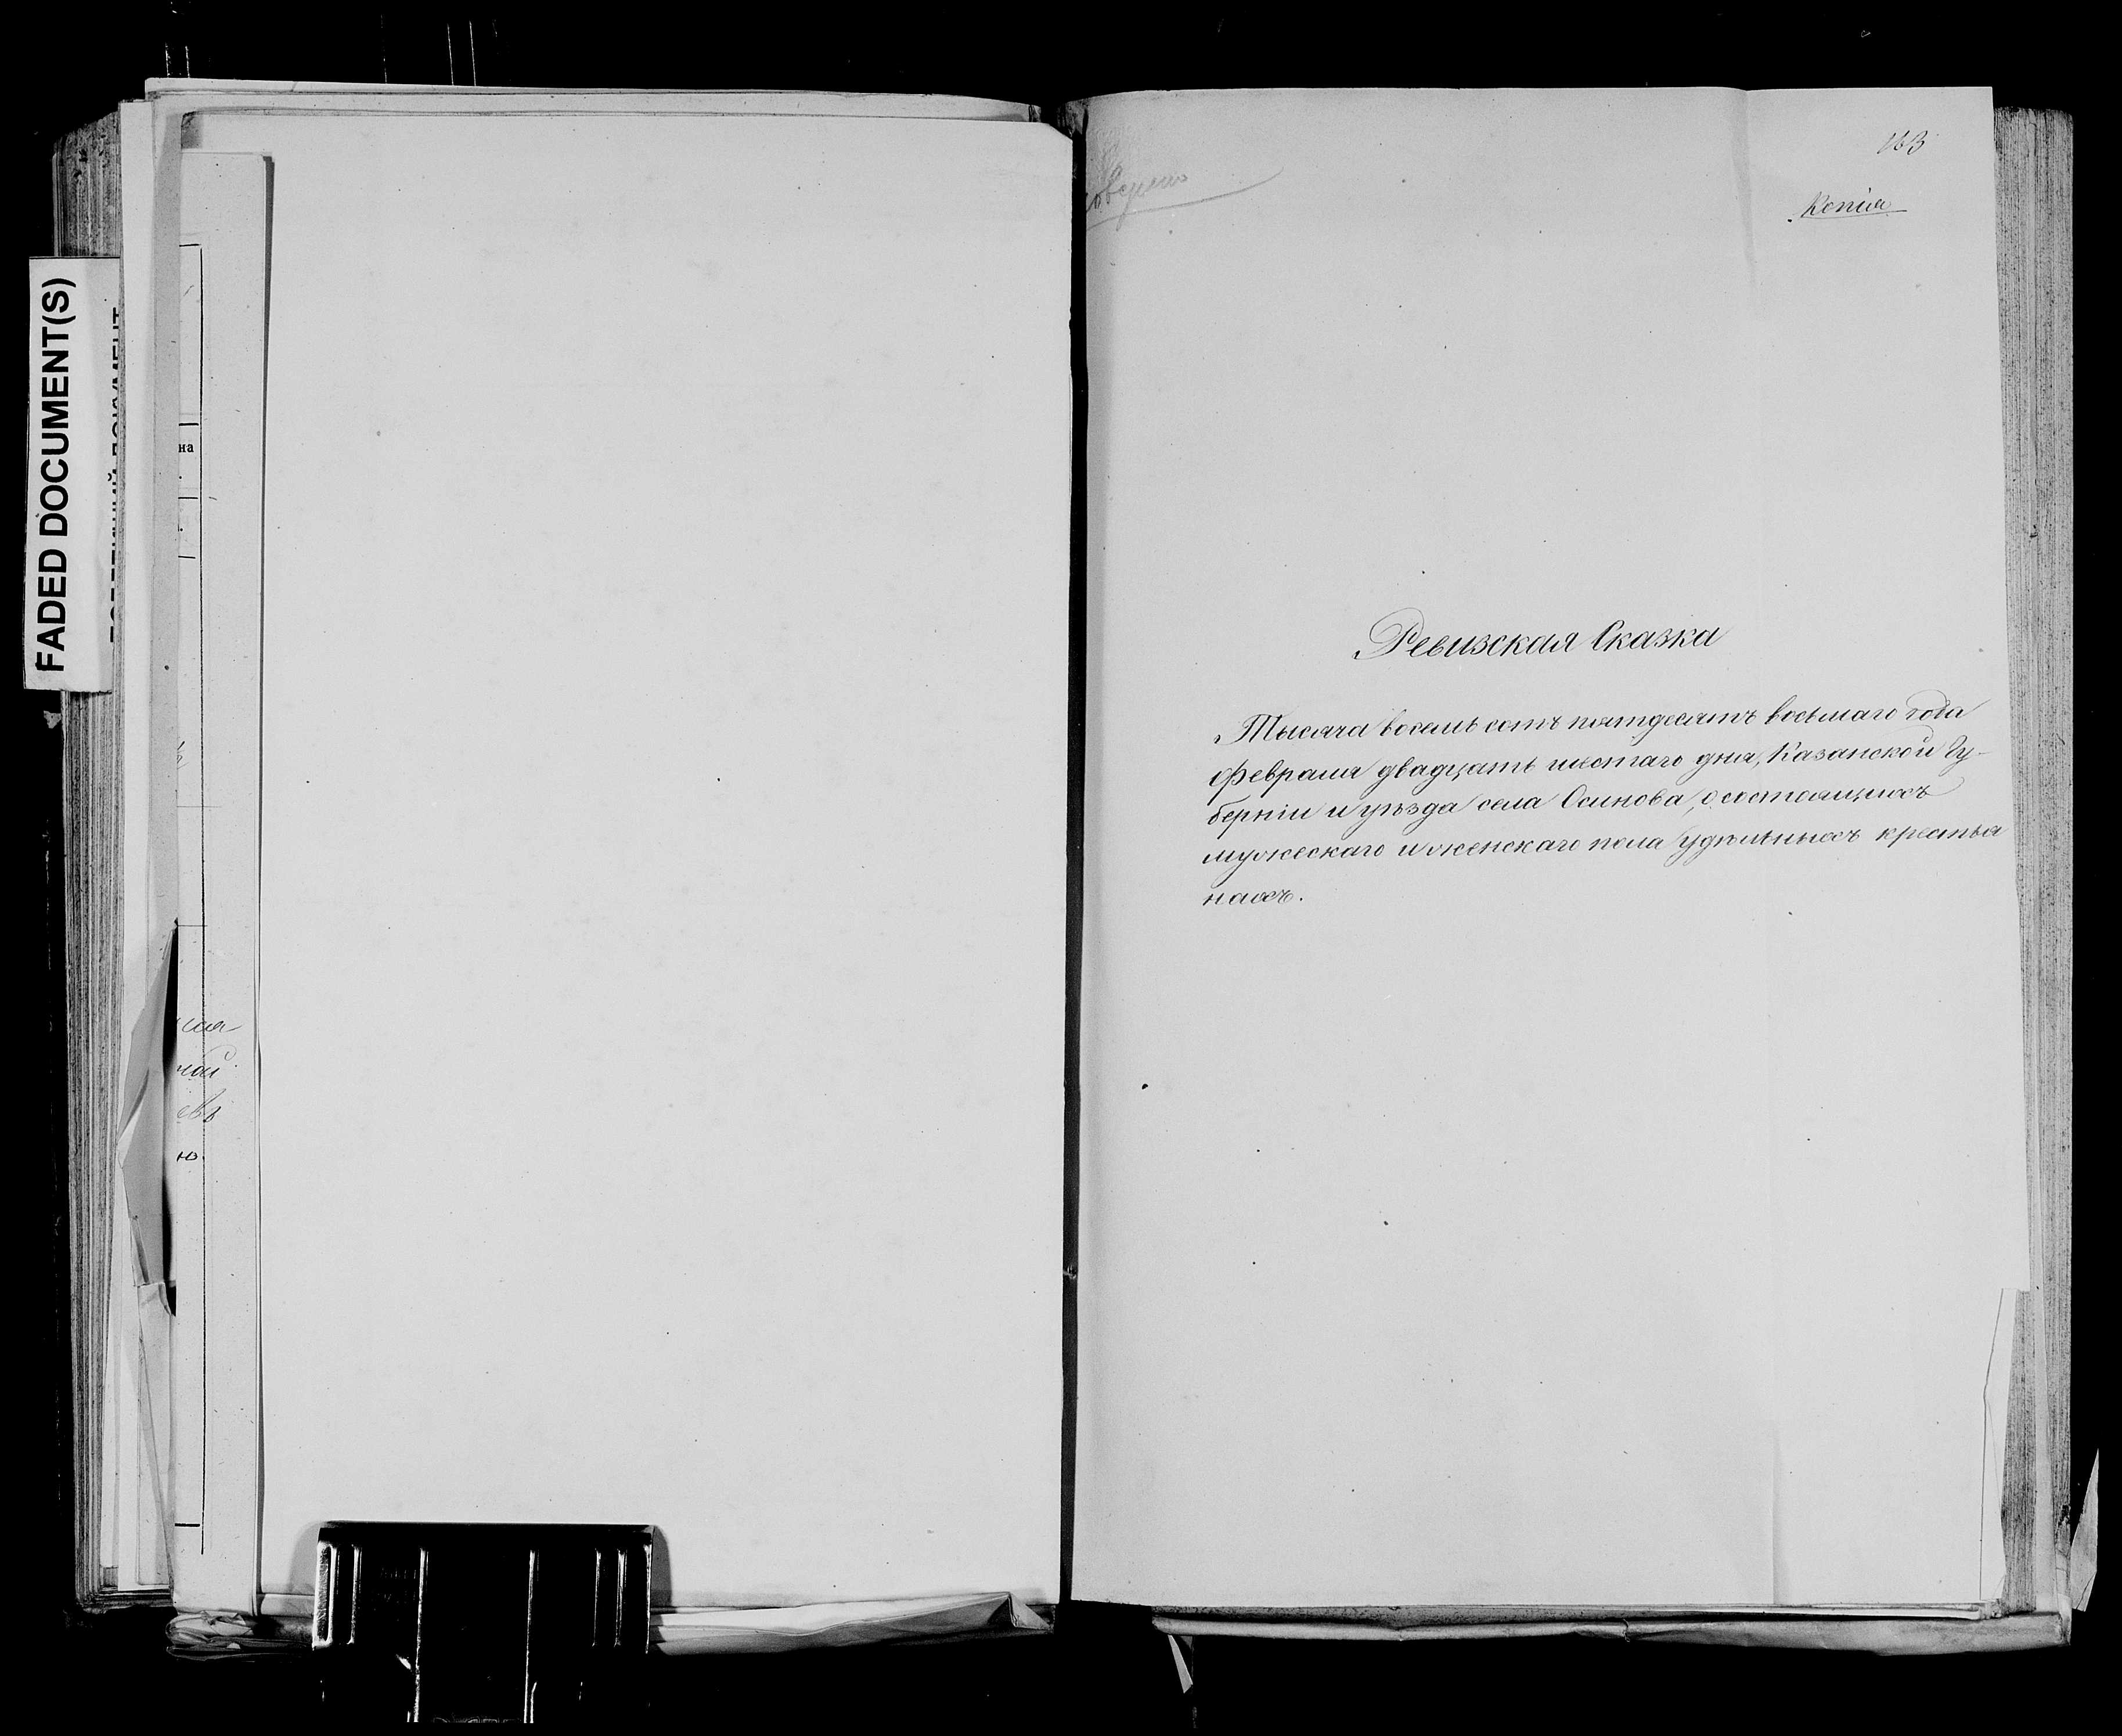 FADED DOCUMENT(S)
на
ной
евъ
ю.
163
Копія
Ревизская Сказка
Тысяча восемь сотъ пятдесятъ восьмаго года
Февраля двадцать шестаго дня, Казанской Гу-
берніи и уѣзда села Осинова, о состоящихъ
мужескаго и женскаго пола Удѣльныхъ крестья
нахъ.